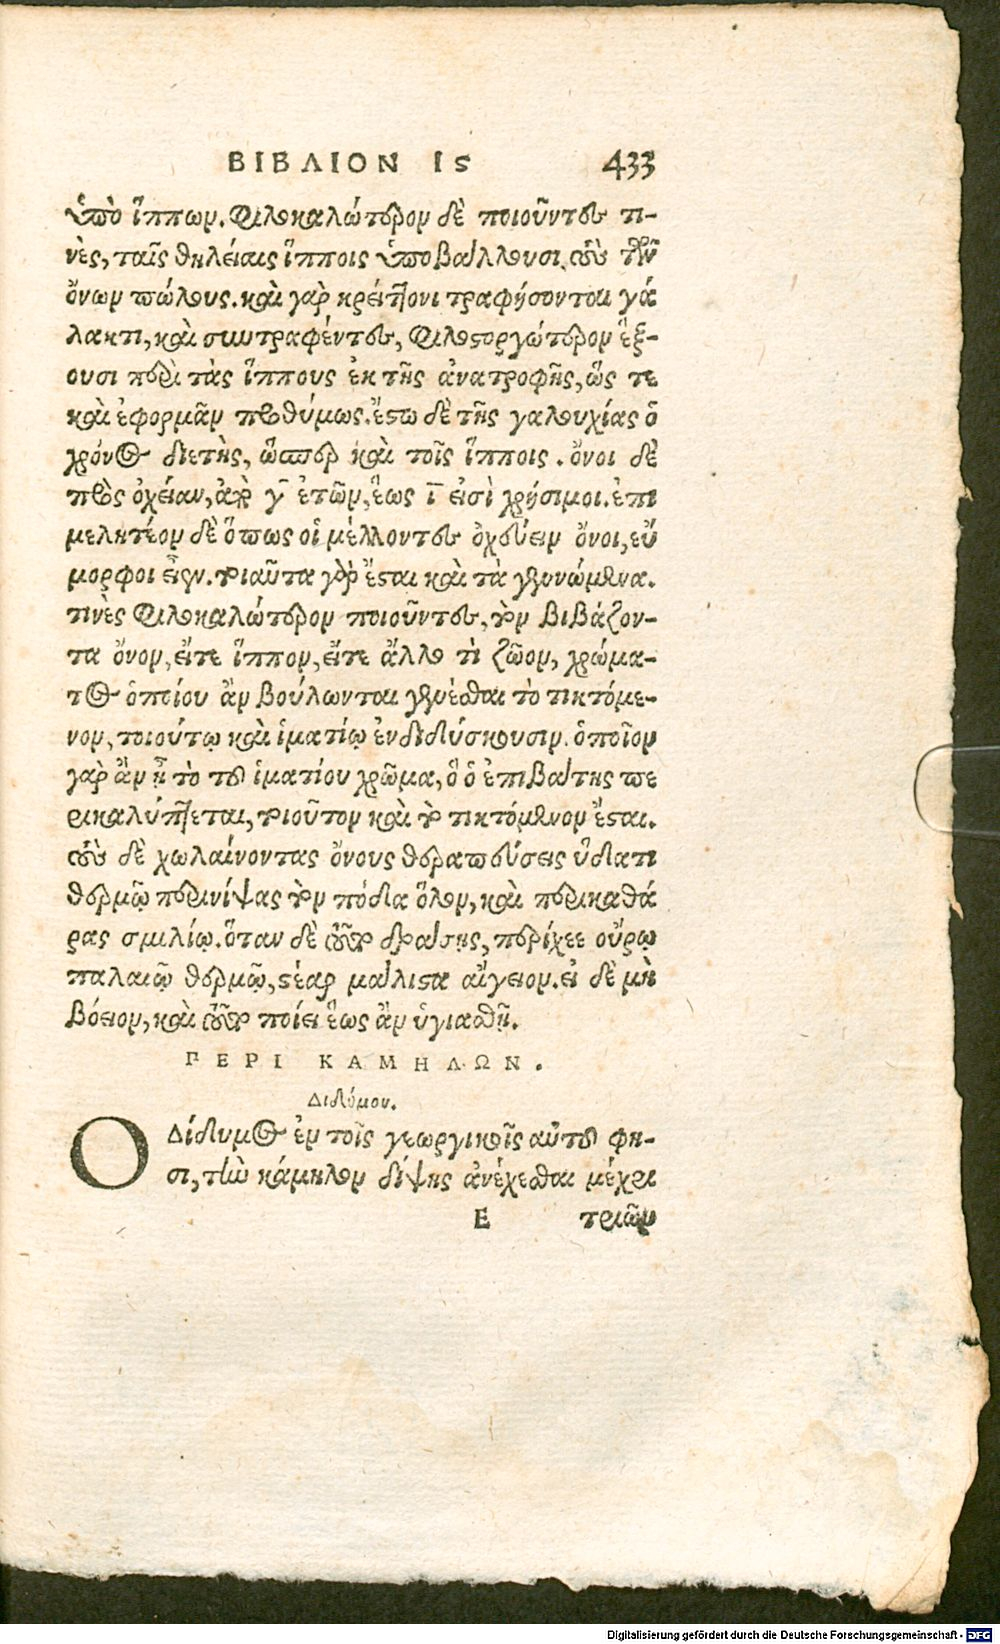 ΒΙΒΛΙΟΝ Ις 433
ὑπὸ ἵππων. φιλοκαλώτερον δὲ ποιοῦντες τι-
νὲς, ταῖς θηλείαις ἵπποις ὑποβάλλουσι τοὺς τῶν
ὄνων πώλους. καὶ γαρ κρείττονι τραφήσονται γά
λακτι, καὶ συντραφέντες, φιλοστοργώτερον ἕξ-
ουσι περὶ τὰς ἵππους ἐκ τῆς ἀνατροφῆς, ὥς τε
καὶ ἐφορμᾶν προθύμως. ἔστω δὲ τῆς γαλουχίας ὁ
χρόνος διετὴς, ὥσπερ καὶ τοῖς ἵπποις. ὄνοι δὲ
πρὸς ὀχείαν, ἀπὸ γ ἐτῶν, ἕως ι εἰσὶ χρήσιμοι. ἐπι
μελητέον δὲ ὅπως οἱ μέλλοντες ὀχεύειν ὄνοι, εὔ
μορφοι εἶεν. τοιαῦτα γὰρ ἔσται καὶ τὰ γεννώμενα.
τινὲς φιλοκαλώτερον ποιοῦντες, τὸν βιβάζον-
τα ὄνον, εἴτε ἵππον, εἴτε ἄλλο τὶ ζῶον, χρώμα-
τος ὁποίου ἂν βούλωνται γενέσθαι τὸ τικτόμε-
νον, τοιούτῳ καὶ ἱματίῳ ἐνδιδύσκουσιν. ὁποῖον
γαρ ἂν ᾖ τὸ τοῦ ἱματίου χρῶμα, ὃ ὁ ἐπιβάτης πε
ρικαλύπτεται, τοιοῦτον καὶ τὸ τικτόμενον ἔσται.
τοὺς δὲ χωλαίνοντας ὄνους θεραπεύσεις ὕδατι
θερμῷ περινίψας τὸν πόδα ὅλον, καὶ περικαθά
ρας σμιλίῳ. ὅταν δὲ τοῦτο δράσῃς, περίχεε οὔρῳ
παλαιῷ θερμῷ, στέαρ μάλιστα αἴγειον. εἰ δὲ μὴ
βόειον, καὶ τοῦτο ποίει ἕως ἂν ὑγιασθῇ.
ΠΕΡΙ ΚΑΜΗΛΩΝ.
Διδύμου.
Ο Δίδυμος ἐν τοῖς γεωργικοῖς αὐτοῦ φη-
σι, τὴν κάμηλον δίψης ἀνέχεσθαι μέχρι
Ε τριῶν
Digitalisierung gefördert durch die Deutsche Forschungsgemeinschaft - DFG